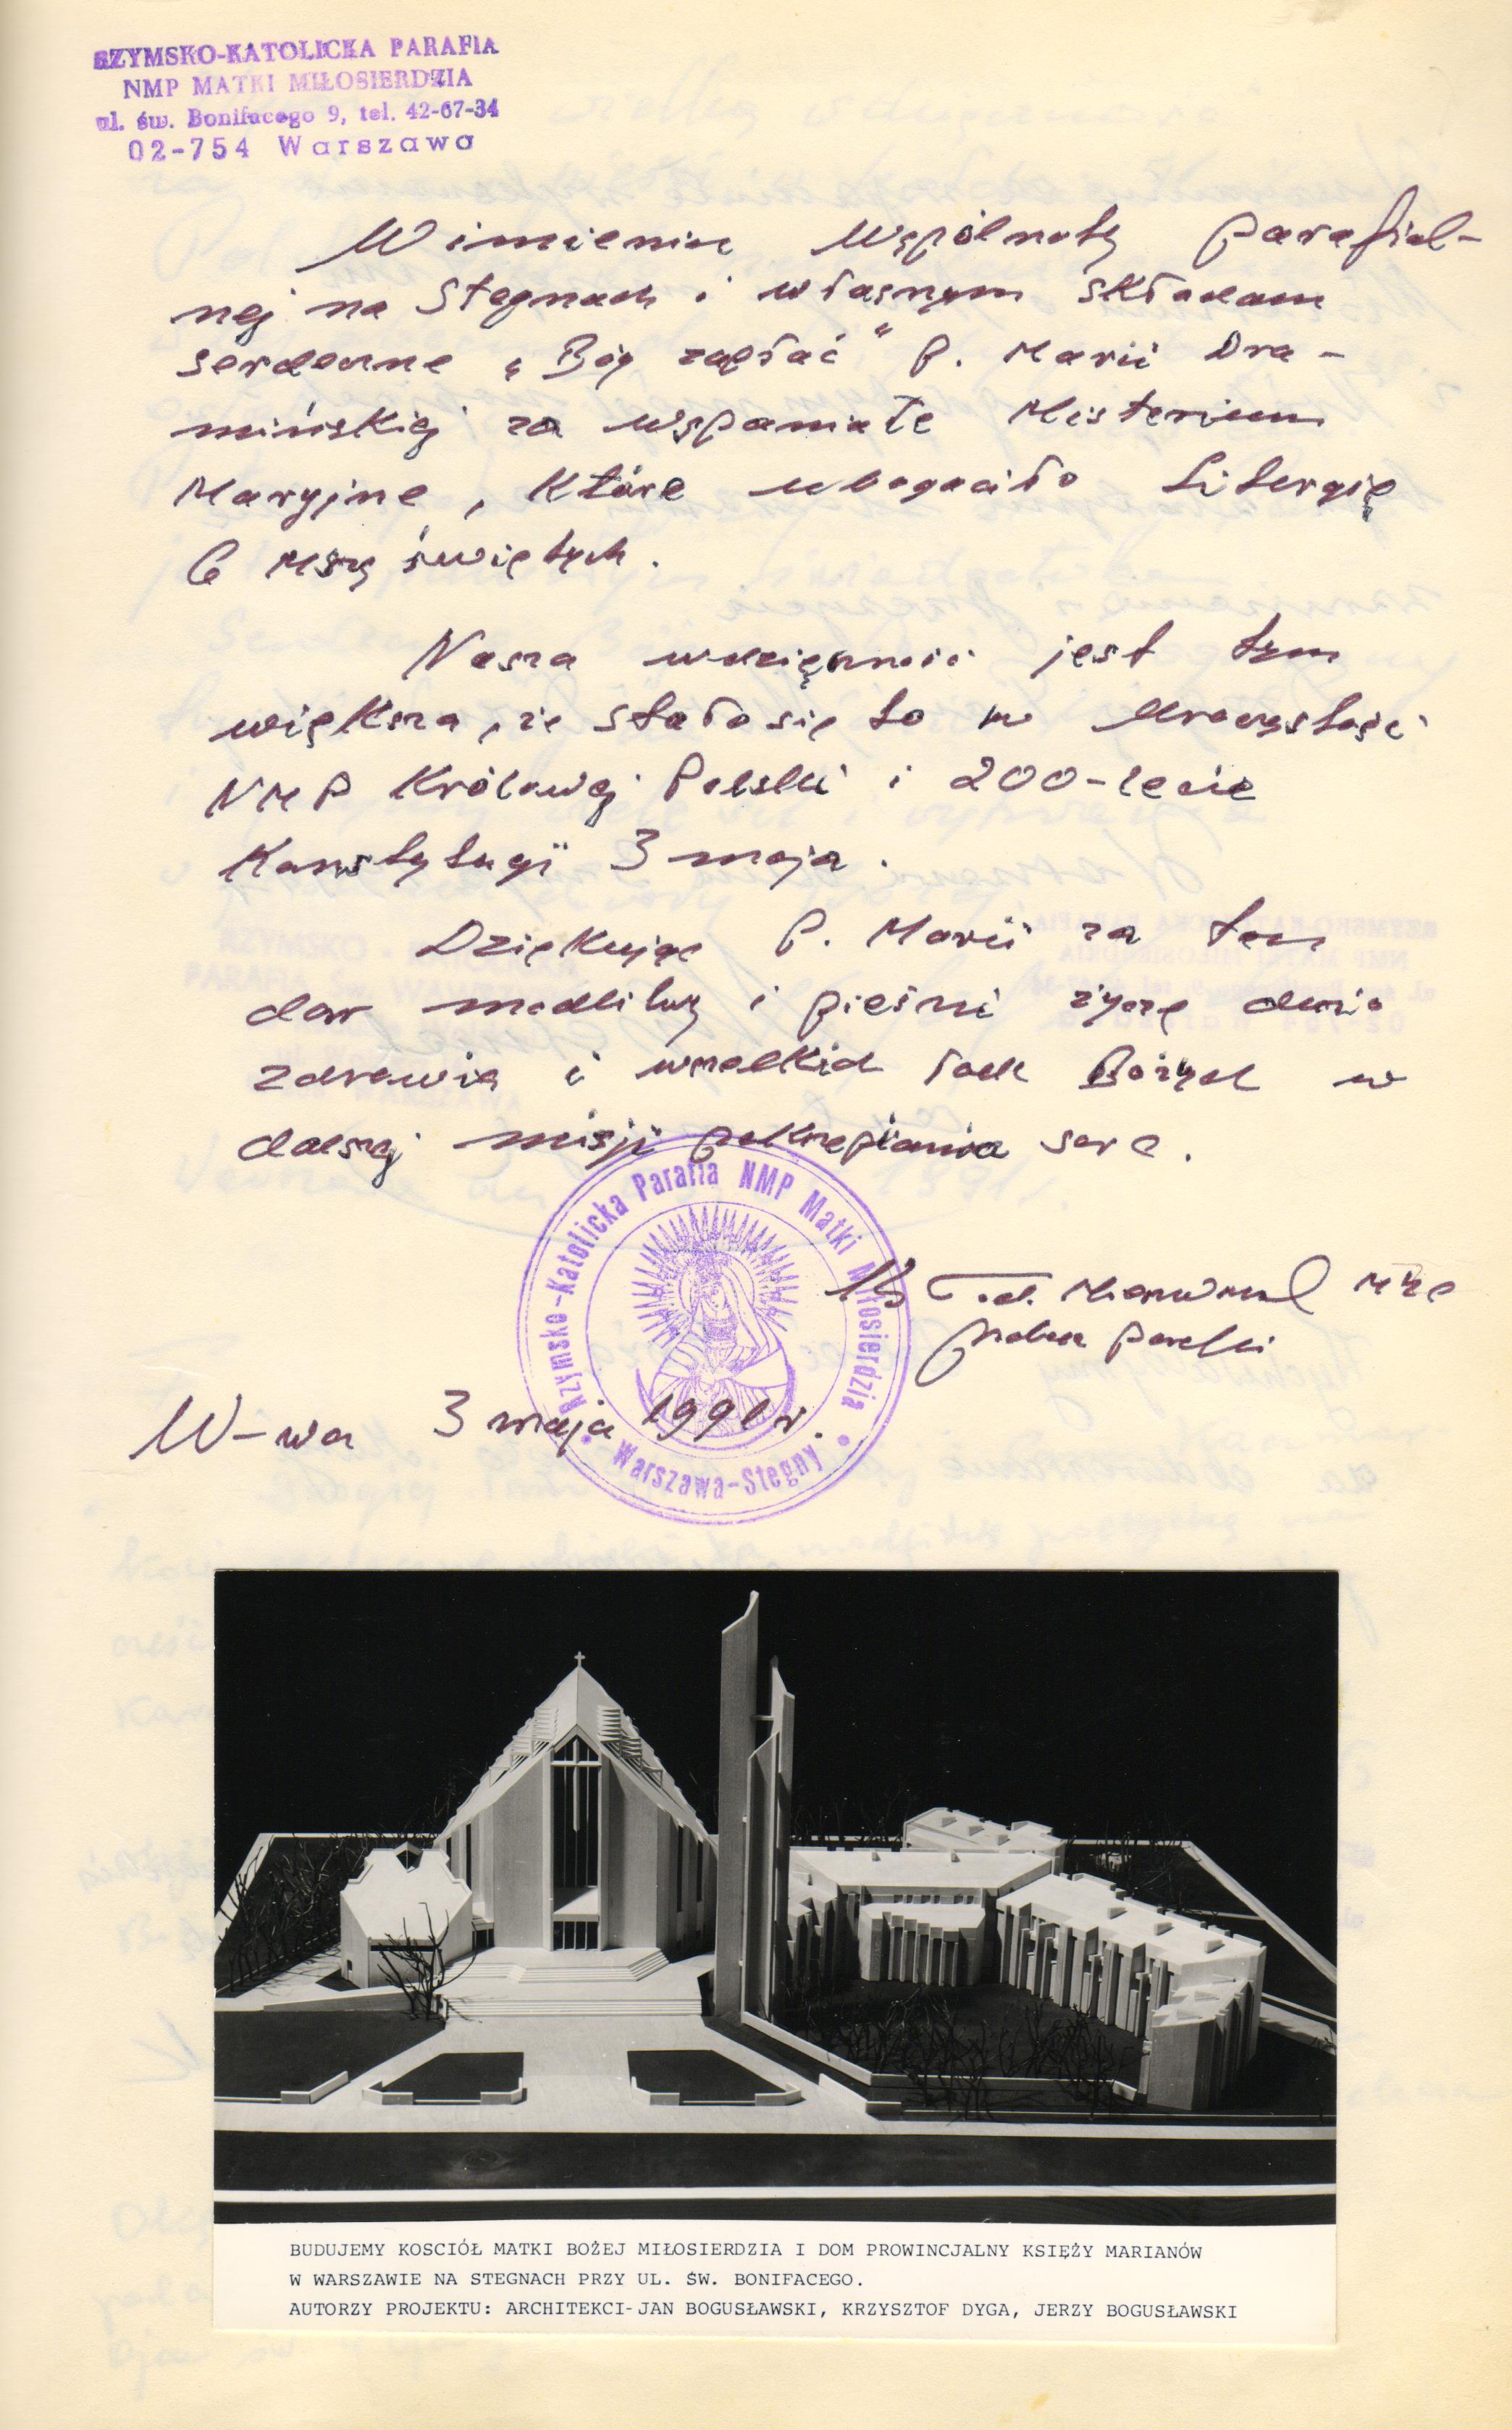 RZYMSKO-KATOLICKA PARAFIA
NMP MATKI MIŁOSIERDZIA
ul. św. Bonifacego 9, tel. 42-67-34
02-754 Warszawa
W imieniu wspólnoty parafial-
nej na Stegnach i własnym składam
serdeczne „Bóg zapłać" p. Marii Dra-
mińskiej za wspaniałe Misterium
Maryjne, które ubogaciło Liturgię
6 Mszy świętych.
Nasza wdzięczność jest tym
większa, że stało się to w Uroczystość
NMP Królowej Polski i 200-lecie
Konstytucji 3 maja.
Dziękując P. Marii za ten
dar modlitwy i pieśni życzę dużo
zdrowia i wszelkich łask Bożych w
dalszej misji pokrzepiania serc.
Rzymsko-Katolicka Parafia NMP Matki Miłosierdzia
Warszawa-Stegny
Ks
proboszcz parafii
W-wa 3 maja 1991 r.
BUDUJEMY KOSCIÓŁ MATKI BOŻEJ MIŁOSIERDZIA I DOM PROWINCJALNY KSIĘŻY MARIANÓW
W WARSZAWIE NA STEGNACH PRZY UL. ŚW. BONIFACEGO.
AUTORZY PROJEKTU: ARCHITEKCI-JAN BOGUSŁAWSKI, KRZYSZTOF DYGA, JERZY BOGUSŁAWSKI